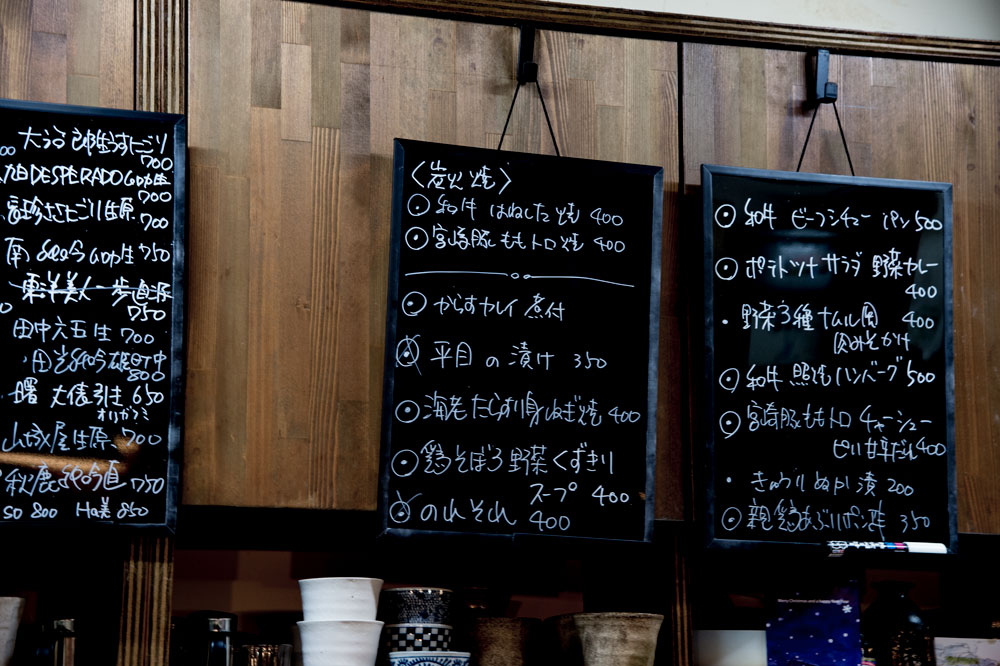 大谷 郎生うすにごり
700
DESPERADO GO山生
700
700
南 GO山生 750
東洋美人一歩直源
750
田中六五生 700
800
曙 大俵引生 650
オリガラミ
700
秋鹿 直 750
so 800 Ha美 850
〈炭火焼〉
和牛 はねした焼 400
宮崎豚ももトロ焼 400
からすカレイ煮付
平目の漬け 350
海老たらすり身ねぎ焼 400
鶏そぼろ野菜くずきり
スープ 400
のれそれ 400
和牛 ビーフシチュー パン 500
ポテトツナサラダ 野菜カレー
400
野菜3種ナムル風 400
肉みそかけ
和牛 照焼ハンバーグ 500
宮崎豚ももトロ チャーシュー
ピリ甘辛だれ 400
きゅうりぬか漬 200
親鶏あぶりポン酢 350